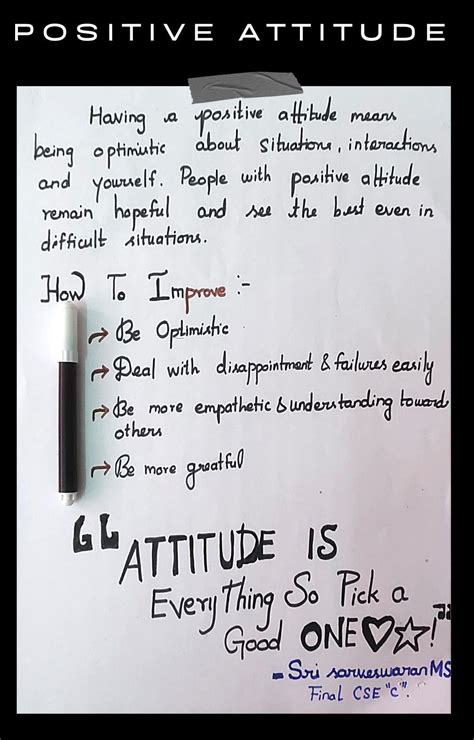 POSITIVE ATTITUDE
Having a positive attitude means
being optimistic about situations, interactions
and yourself. People with positive attitude
remain hopeful and see the best even in
difficult situations.
How To Improve :-
→ Be Optimistic
→ Deal with disappointment & failures easily
→ Be more empathetic & understanding toward
others
→ Be more greatful
“ ATTITUDE IS
Every Thing So Pick a
Good ONE♡☆!”
- Sri sarveswaran MS
Final CSE "C".